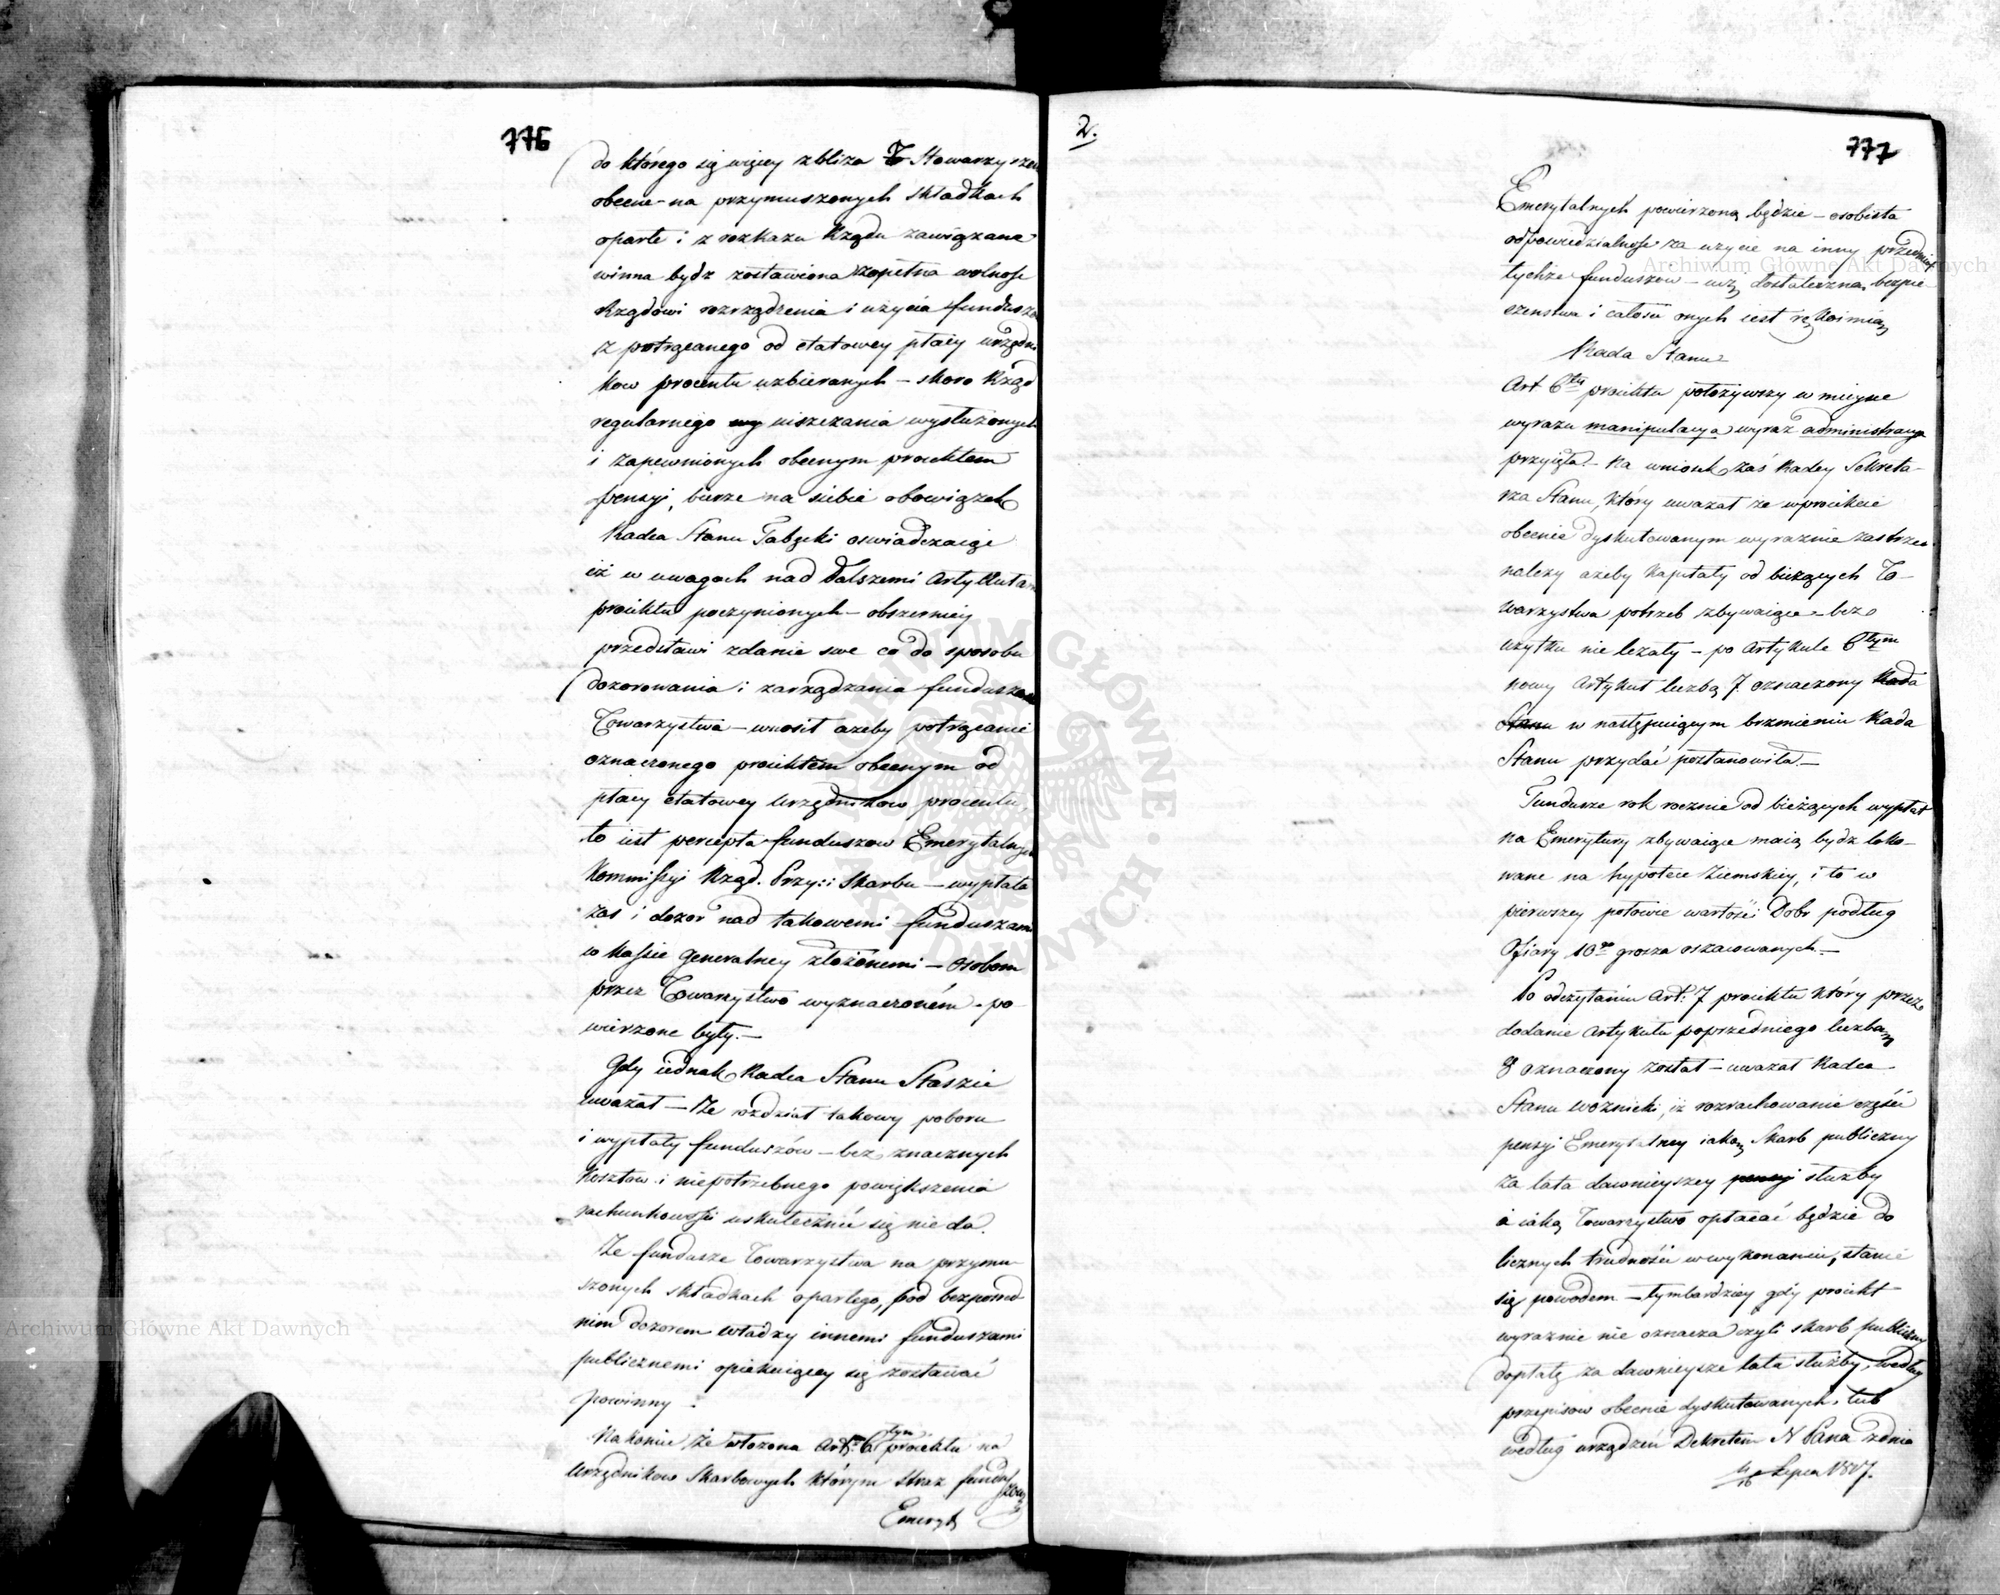 776
do którego się więcy zbliża Stowarzyszen
obecne na przymuszonych składkach
oparte i z rozkazu Rządu zawiązane
winna bydz zostawiona zupełna wolnosc
Rządowi rozrządzenia i użycia fundusz
z potrąceanego od etatowey płacy urzędni
kow procentu uzbieranych – skoro Rząd
regularnego uiszczania wysłużonych
i zapewnionych obecnym proiektem
pensyi, bierze na siebie obowiązek
Radca Stanu Tabęcki oswiadczaiąc
iż w uwagach nad dalszemi Artykuła
proiektu poczynionych – obszerniey
przedstawi zdanie swe co do sposobu
dozorowania i zarządzania funduszami
Towarzystwa – wnosił azeby potrąceanie
oznaczonego proiektem obecnym od
płacy etatowey Urzędnikow procentu,
to iest percepta funduszow Emerytalnych
Kommissyi Rząd. Przy: i Skarbu – wypłata
zas i dozor nad takowemi funduszami
w Kassie Generalney złożonemi – osobom
przez Towarzystwo wyznaczoném – po
wierzone były. –
Gdy iednak Radca Stanu Staszic
uważał – Że rozdział takowy poboru
i wypłaty funduszów – bez znacznych
Kosztow i niepotrzebnego powiększenia
rachunkowosci uskutecznić się nie da.
Że fundusze Towarzystwa na przymu
szonych składkach opartego, pod bezposred
nim dozorem władzy innemi funduszami
publicznemi opiekuiącey się zostawać
powinny :
Nakoniec że włożona Art: 6 tym proiektu na
Urzędnikow Skarbowych którym straz fundu
szow
Emeryt
2.
777
Emerytalnych powierzoną będzie – osobista
odpowiedzialnosc za użycie na inny przedmiot
tychże funduszow – iest dostateczną bezpie
czenstwa i całosci onych iest rękoimią
Rada Stanu
Art 6ty proiektu położywszy w mieysce
wyrazu manipulacya wyraz administracya
przyięła – Na wniosek zaś Radcy Sekreta-
rza Stanu, który uwazał że w proiekcie
obecnie dyskutowanym wyraznie zastrzec
nalezy azeby Kapitały od bieżących To-
warzystwa potrzeb zbywaiące – bez
użytku nie leżały – po Artykule 6tym
nowy Artykuł liczbą 7 oznaczony Rada
Stanu w następuiącym brzmieniu Rada
Stanu przydać postanowiła. –
Fundusze rok rocznie od bieżących wypłat
na Emerytury zbywaiące maią bydz loko-
wane na hypotece Ziemskiey, i to w
pierwszey połowie wartości Dobr podług
Ofiary 10go grosza oszacowanych. –
Po odczytaniu Art: 7 proiektu który przez
dodanie Artykułu poprzedniego liczbą
8 oznaczony został – uwazał Radca
Stanu Woznicki, iż rozrachowanie części
pensyi Emerytalney iaką Skarb publiczny
za lata dawnieyszey pensyi służby
a iaką Towarzystwo opłacać będzie do
licznych trudności w wykonaniu, stanie
się powodem – tymbardziey gdy proiekt
wyraznie nie oznacza czyli skarb publiczny
dopłatę za dawnieysze lata służby, według
przepisow obecnie dyskutowanych, lub
według urządzeń Dekretem N Pana z dnia
Lipca 1807.